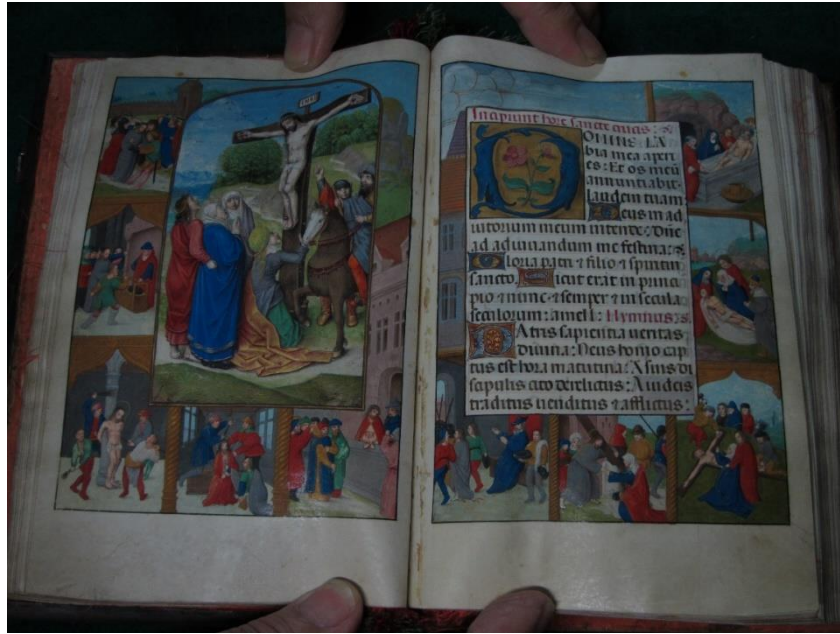 INRI
Incipiunt hore sancte crucis:
DOMINE LA
bia mea aperi
es: Et os meū
annunciabit
laudem tuam
Deus in ad
iutorium meum intende: Dñe
ad adiuuandum me festina:
Gloria patri et filio et spiritui
sancto. Sicut erat in princi
pio et nunc et semper et in secula
seculorum: amen: Hymnus:
Patris sapientia ueritas
diuina: Deus homo cap
tus est hora matutina: A suis di
scipulis cito derelictus: A iudeis
traditus uenditus et afflictus: